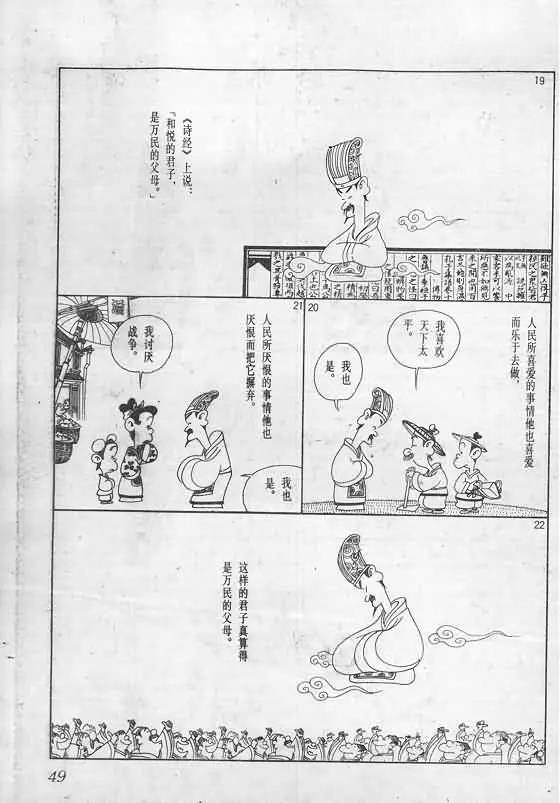 19
《诗经》上说：
「和悦的君子，
是万民的父母。」
20
人民所喜爱的事情他也喜爱
而乐于去做，
我喜欢
天下太
平。
我也
是。
21
人民所厌恨的事情他也
厌恨而把它摒弃。
我讨厌
战争。
我也
是。
22
这样的君子真算得
是万民的父母。
49